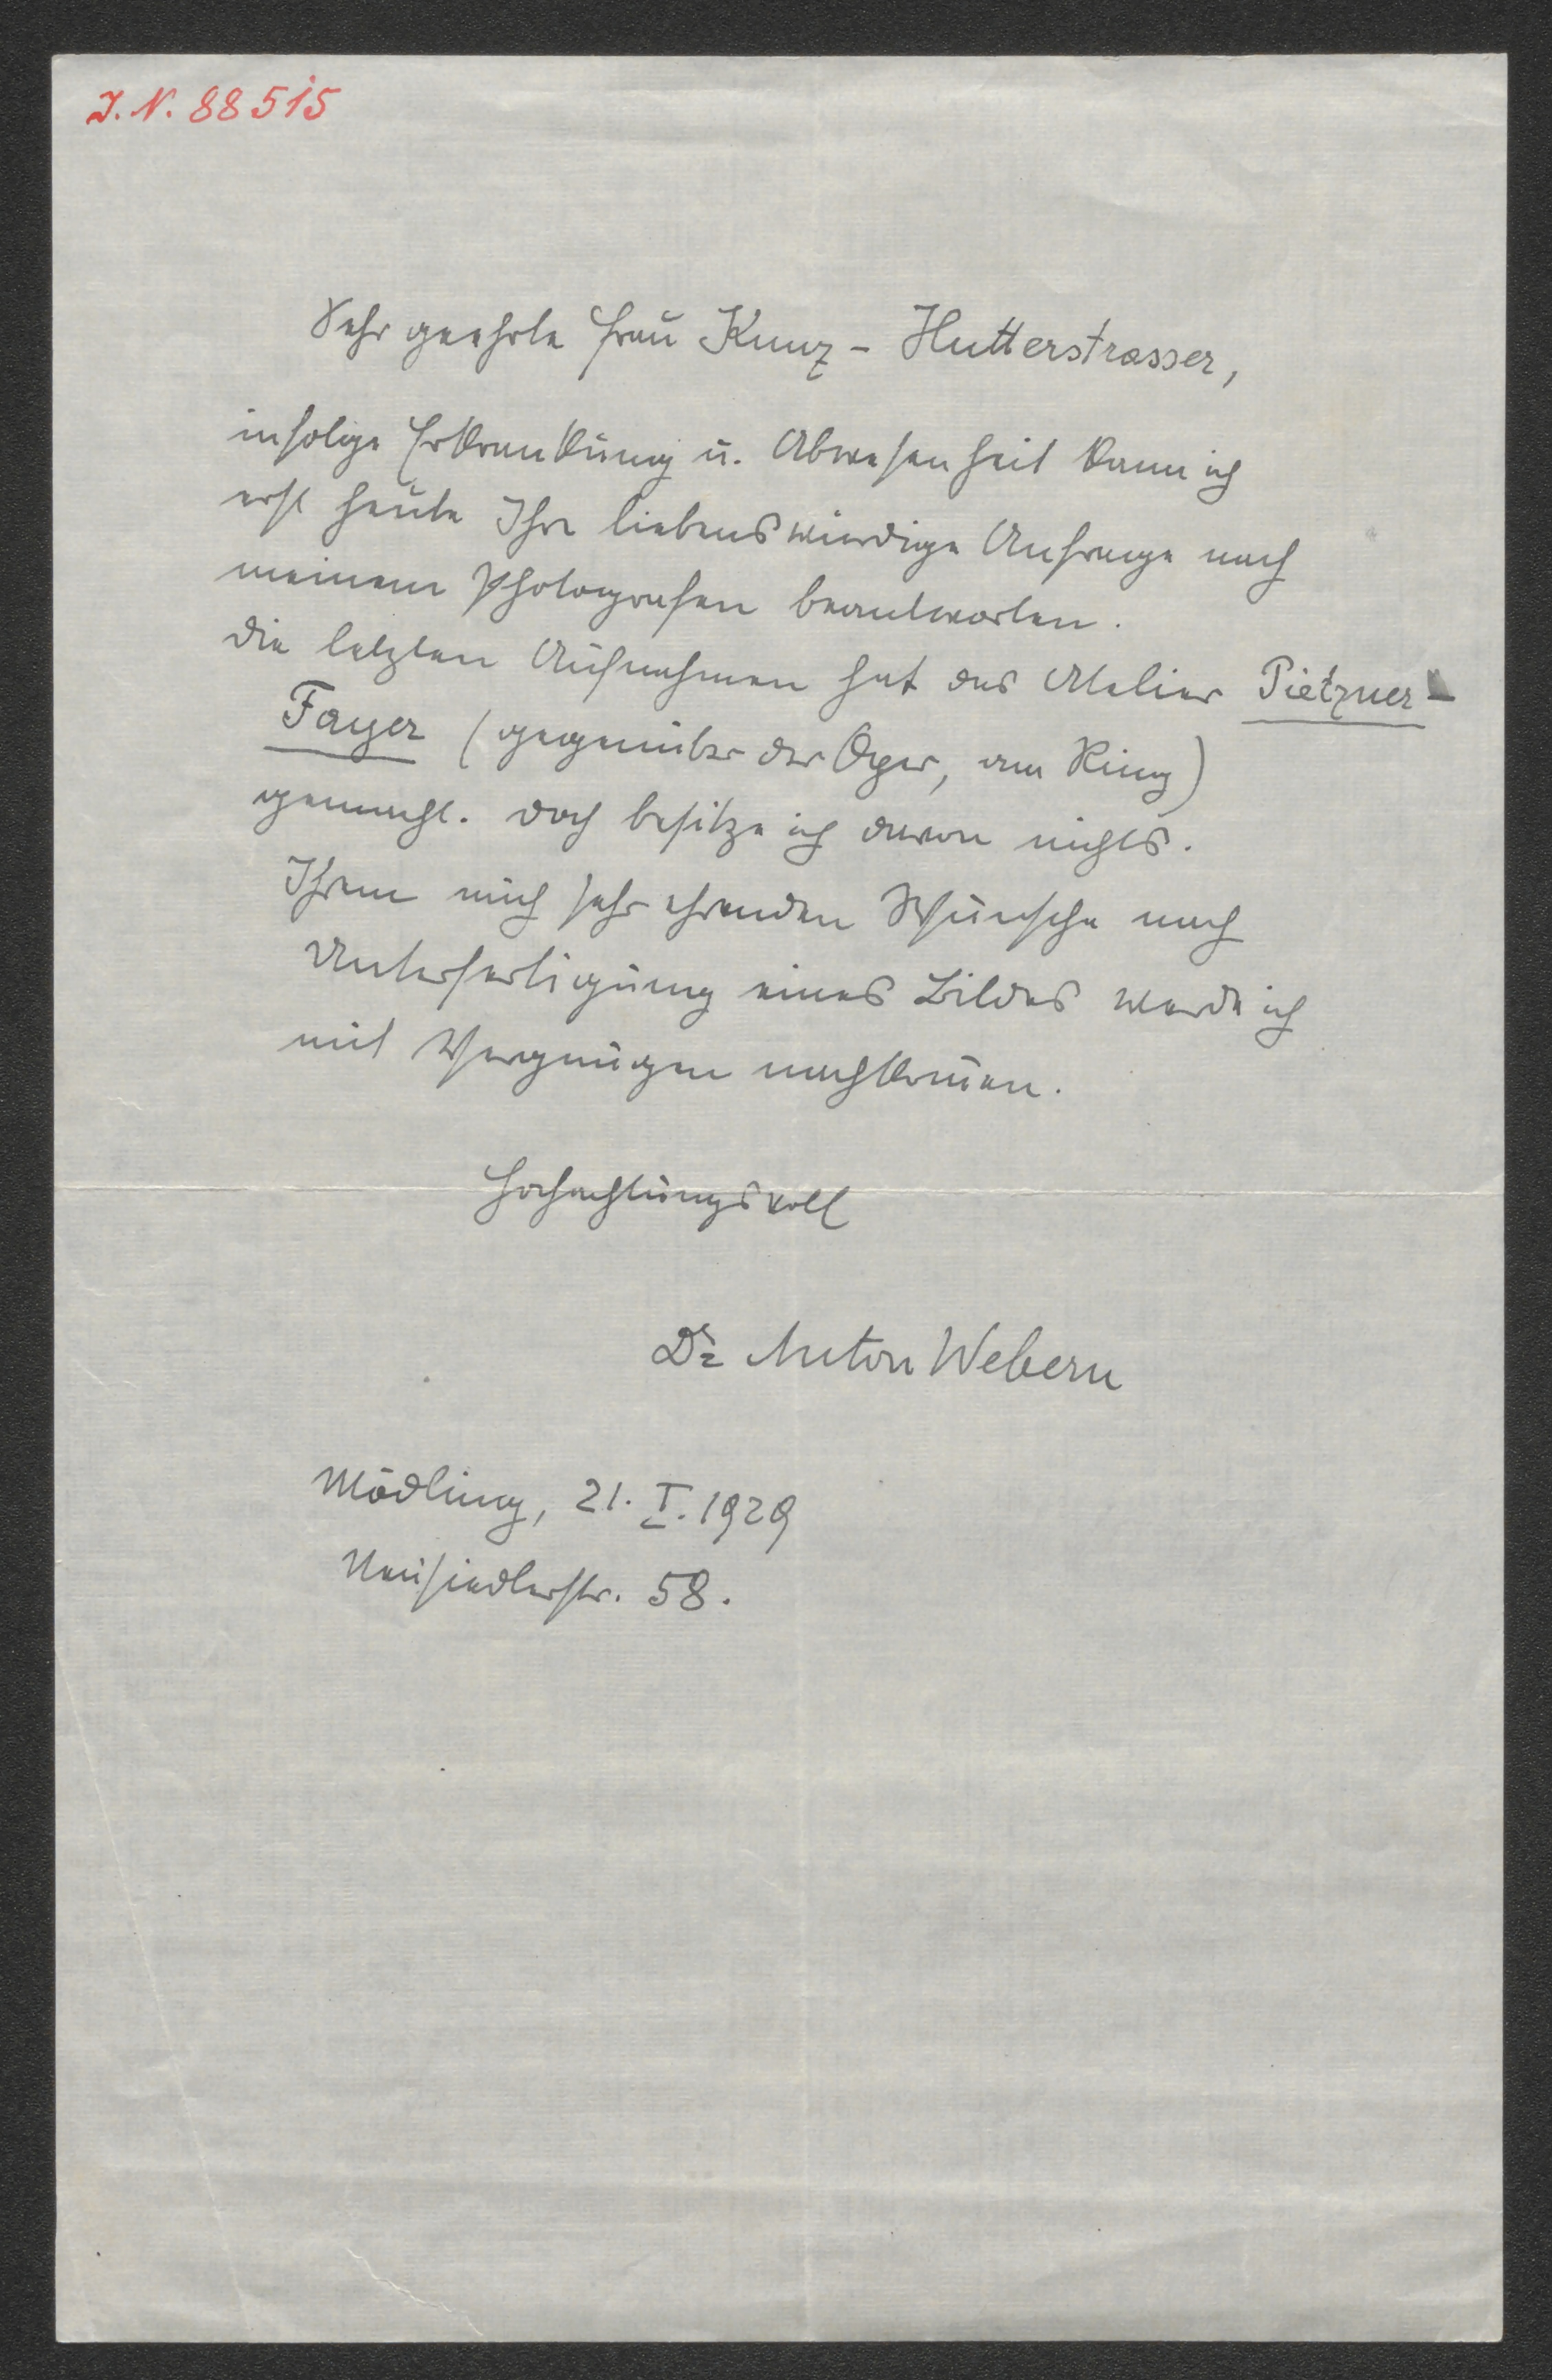 J. N. 88515
Sehr geehrte Frau Kunz - Hutterstrasser,
infolge Erkrankung u. Abwesenheit kann ich
erst heute Ihre liebenswürdige Anfrage nach
meinem Photografen beantworten.
Die letzten Aufnahmen hat das Atelier Pietzner-
Fayer (gegenüber der Oper, am Ring)
gemacht. Doch besitze ich davon nichts.
Ihrem mich sehr ehrenden Wunsche nach
Unterfertigung eines Bildes werde ich
mit Vergnügen nachkom̅en.
Hochachtungsvoll
Dr Anton Webern
Mödling, 21. I. 1929
Neusiedlerstr. 58.